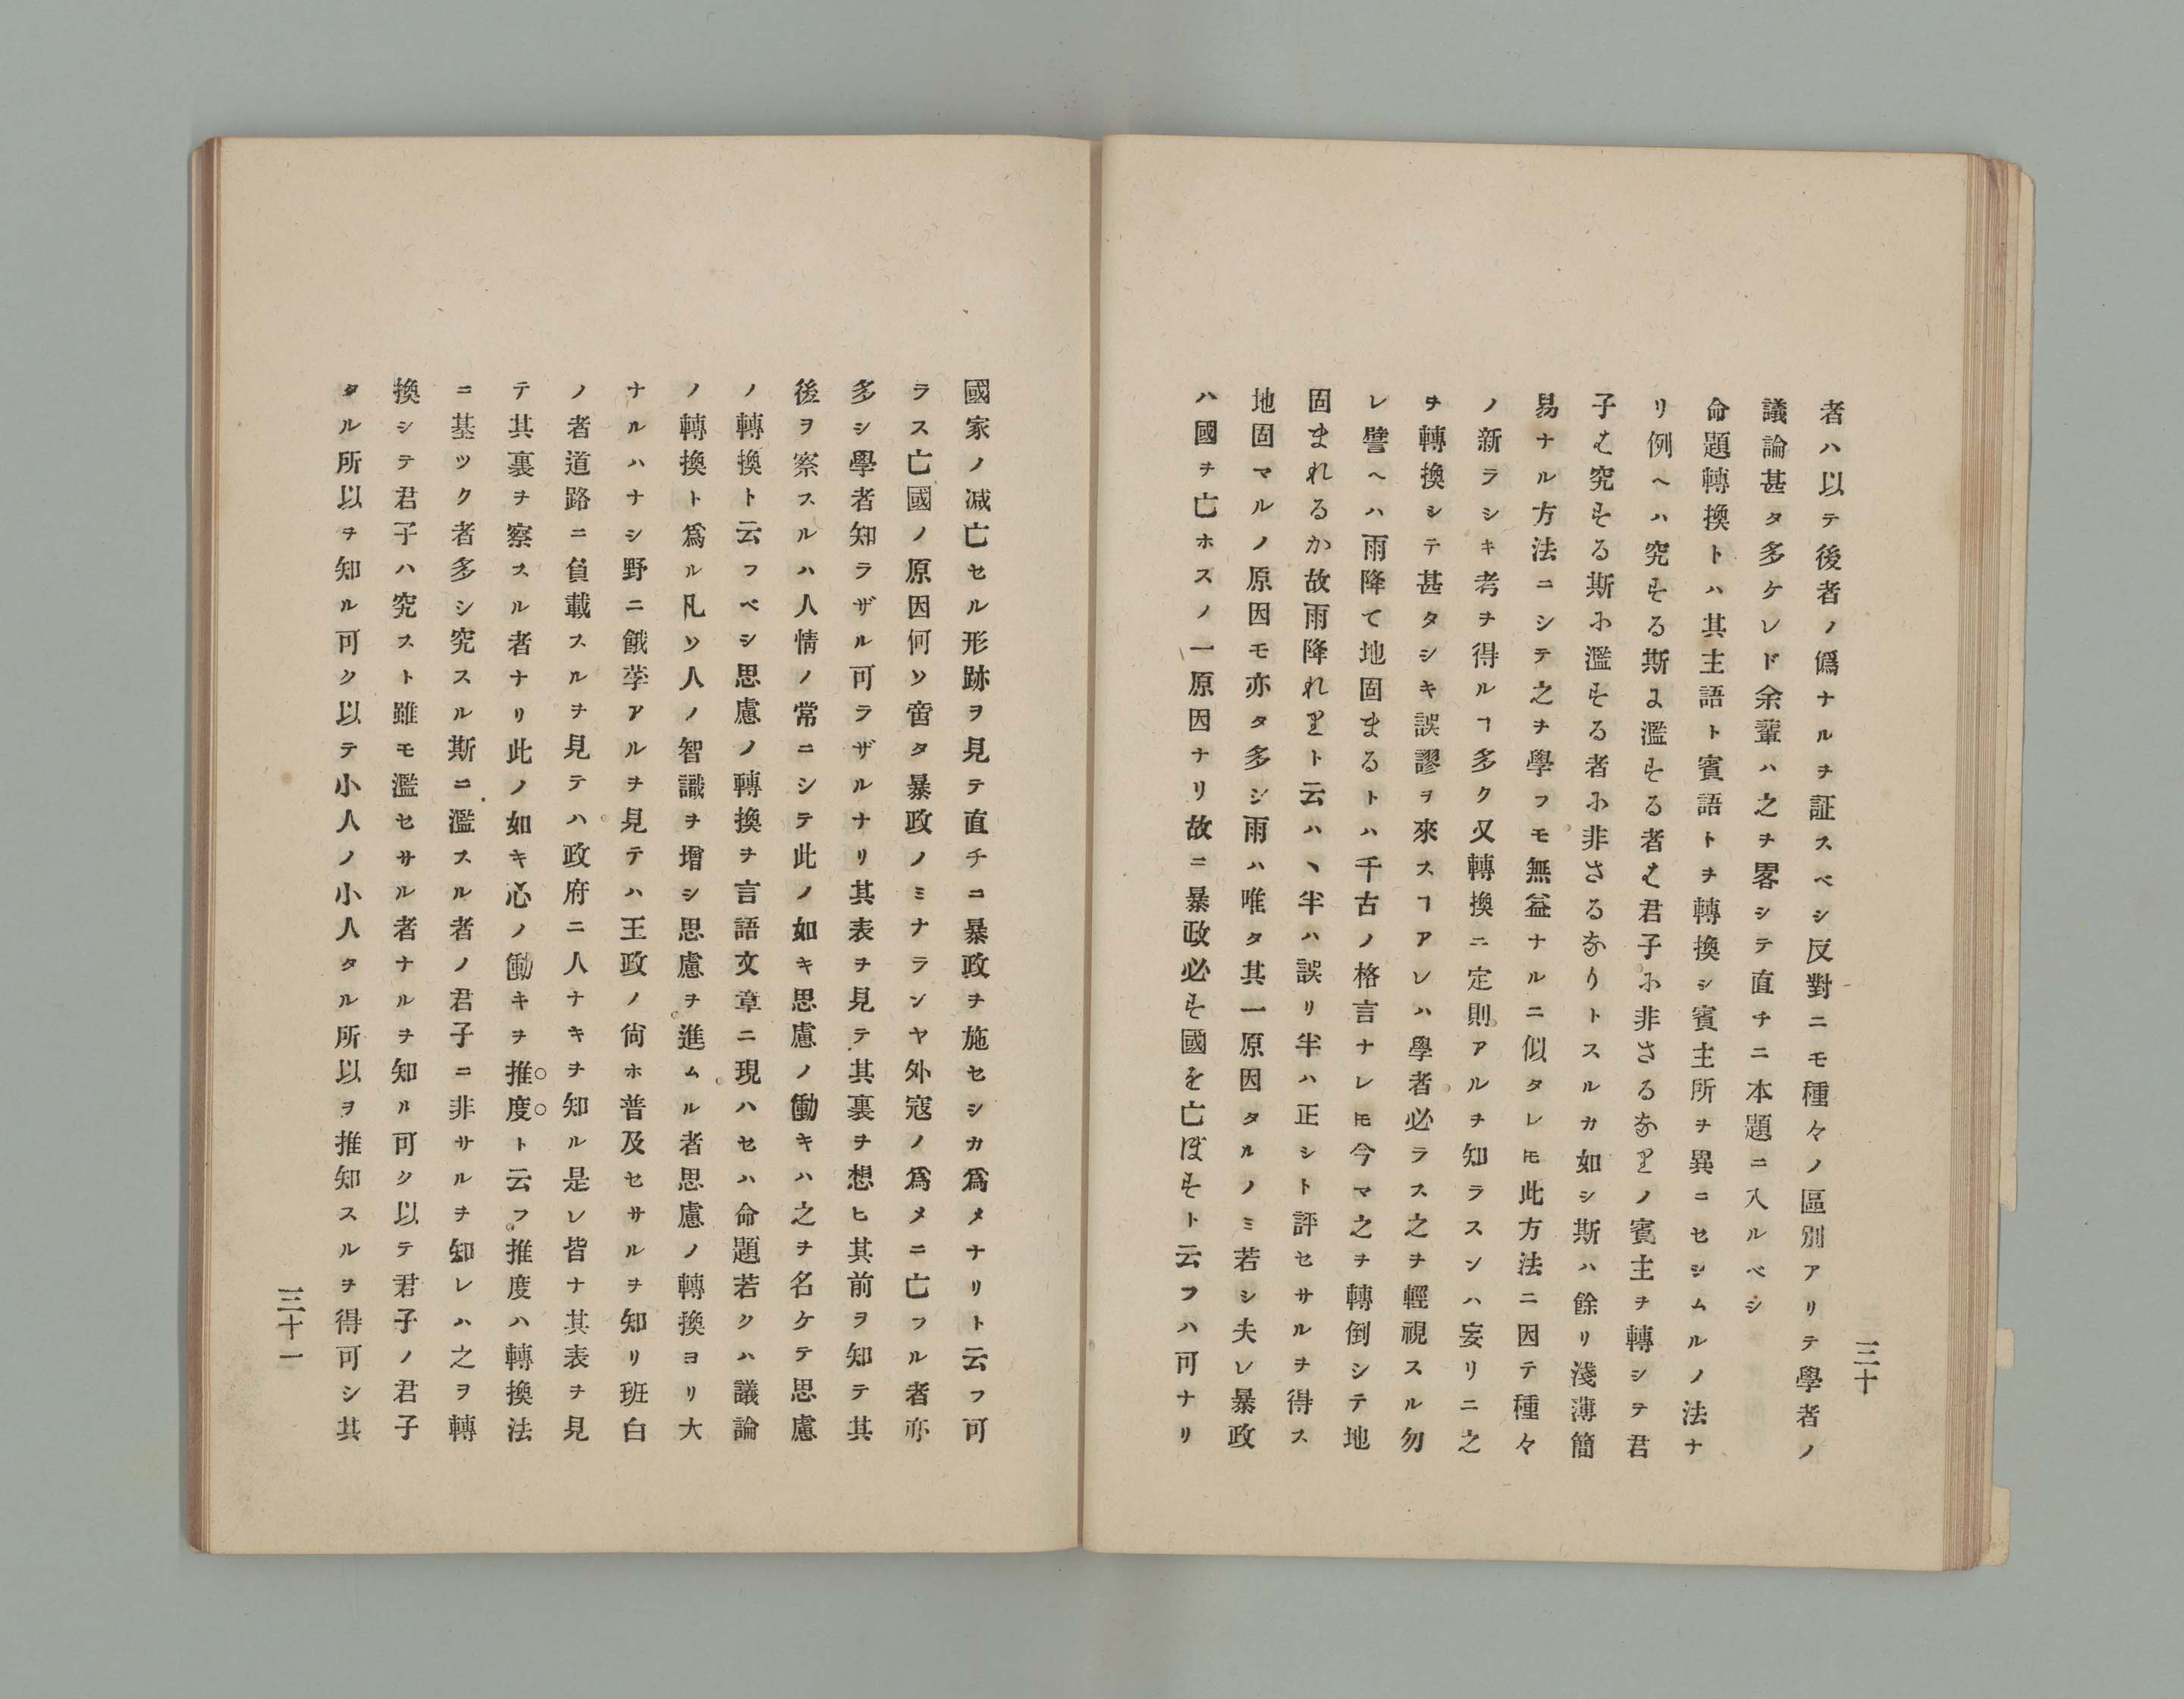 三十
者ハ以テ後者ノ僞ナルヲ証スベシ反對ニモ種々ノ區別アリテ學者ノ
議論甚タ多ケレド余輩ハ之ヲ畧シテ直チニ本題ニ入ルベシ
命題轉換トハ其主語ト賓語トヲ轉換シ賓主所ヲ異ニセシムルノ法ナ
リ例ヘハ究をる斯よ濫をる者む君子ふ非さるなりノ賓主ヲ轉シテ君
子む究をる斯ふ濫をる者ふ非さるなりトスルカ如シ斯ハ餘リ淺薄簡
易ナル方法ニシテ之ヲ學フモ無益ナルニ似タレㇳモ此方法ニ因テ種々
ノ新ラシキ考ヲ得ルヿ多ク又轉換ニ定則アルヲ知ラスンハ妄リニ之
ヲ轉換シテ甚タシキ誤謬ヲ來スヿアレハ學者必ラス之ヲ輕視スル勿
レ譬ヘハ雨降て地固まるトハ千古ノ格言ナレㇳモ今マ之ヲ轉倒シテ地
固まれるか故雨降れりト云ハヽ半ハ誤リ半ハ正シト評セサルヲ得ス
地固マルノ原因モ亦タ多シ雨ハ唯タ其一原因タルノミ若シ夫レ暴政
ハ國ヲ亡ホスノ一原因ナリ故ニ暴政必ず國を亡ぼすト云フハ可ナリ
國家ノ滅亡セル形跡ヲ見テ直チニ暴政ヲ施セシカ爲メナリト云フ可
ラス亡國ノ原因何ソ啻タ暴政ノミナランヤ外冦ノ爲メニ亡フル者亦
多シ學者知ラザル可ラザルナリ其表ヲ見テ其裏ヲ想ヒ其前ヲ知テ其
後ヲ察スルハ人情ノ常ニシテ此ノ如キ思慮ノ働キハ之ヲ名ケテ思慮
ノ轉換ト云フベシ思慮ノ轉換ヲ言語文章ニ現ハセハ命題若クハ議論
ノ轉換ト爲ル凡ソ人ノ智識ヲ增シ思慮ヲ進ムル者思慮ノ轉換ヨリ大
ナルハナシ野ニ餓莩アルヲ見テハ王政ノ尙ホ普及セサルヲ知リ班白
ノ者道路ニ負載スルヲ見テハ政府ニ人ナキヲ知ル是レ皆ナ其表ヲ見
テ其裏ヲ察スル者ナリ此ノ如キ心ノ働キヲ推度ト云フ推度ハ轉換法
ニ基ツク者多シ究スル斯ニ濫スル者ノ君子ニ非サルヲ知レハ之ヲ轉
換シテ君子ハ究スト雖モ濫セサル者ナルヲ知ル可ク以テ君子ノ君子
タル所以ヲ知ル可ク以テ小人ノ小人タル所以ヲ推知スルヲ得可シ其
三十一